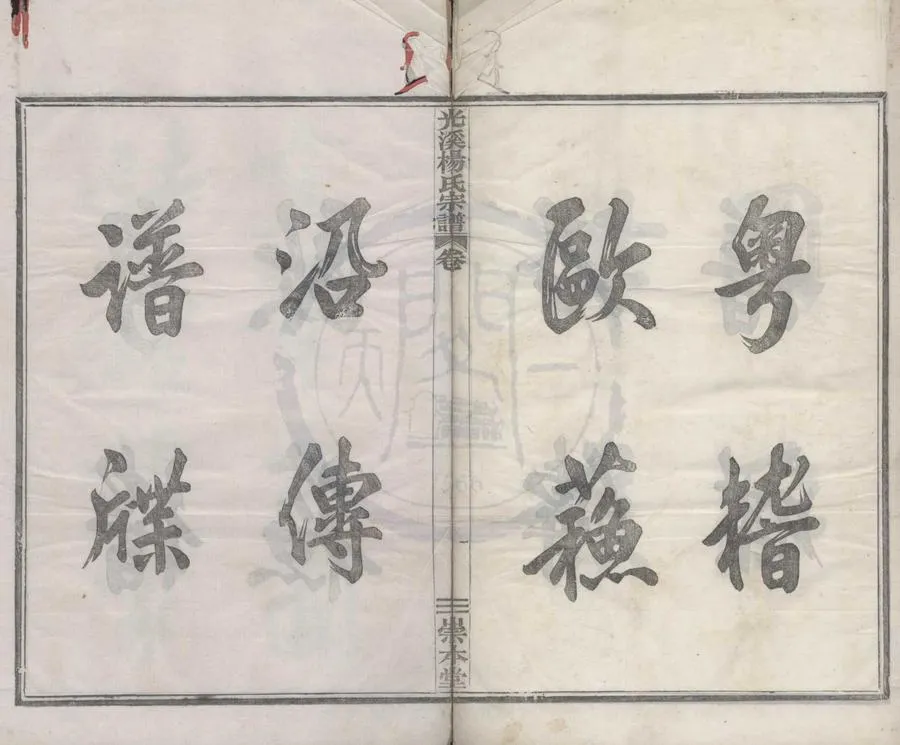 粤稽
歐蘓
光溪楊氏宗譜 卷 一 崇本堂
沿傳
譜牒